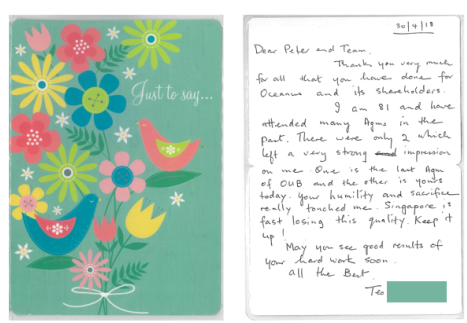 Just to say...
30/4/18
Dear Peter and Team,
Thank you very much
for all that you have done for
Oceanus and its shareholders.
I am 81 and have
attended many Agms in the
past. There were only 2 which
left a very strong impression
on me. One is the last Agm
of OUB and the other is yours
today. Your humility and sacrifice
really touched me. Singapore is
fast losing this quality. Keep it
up!
May you see good results of
your hard work soon.
All the Best.
Teo